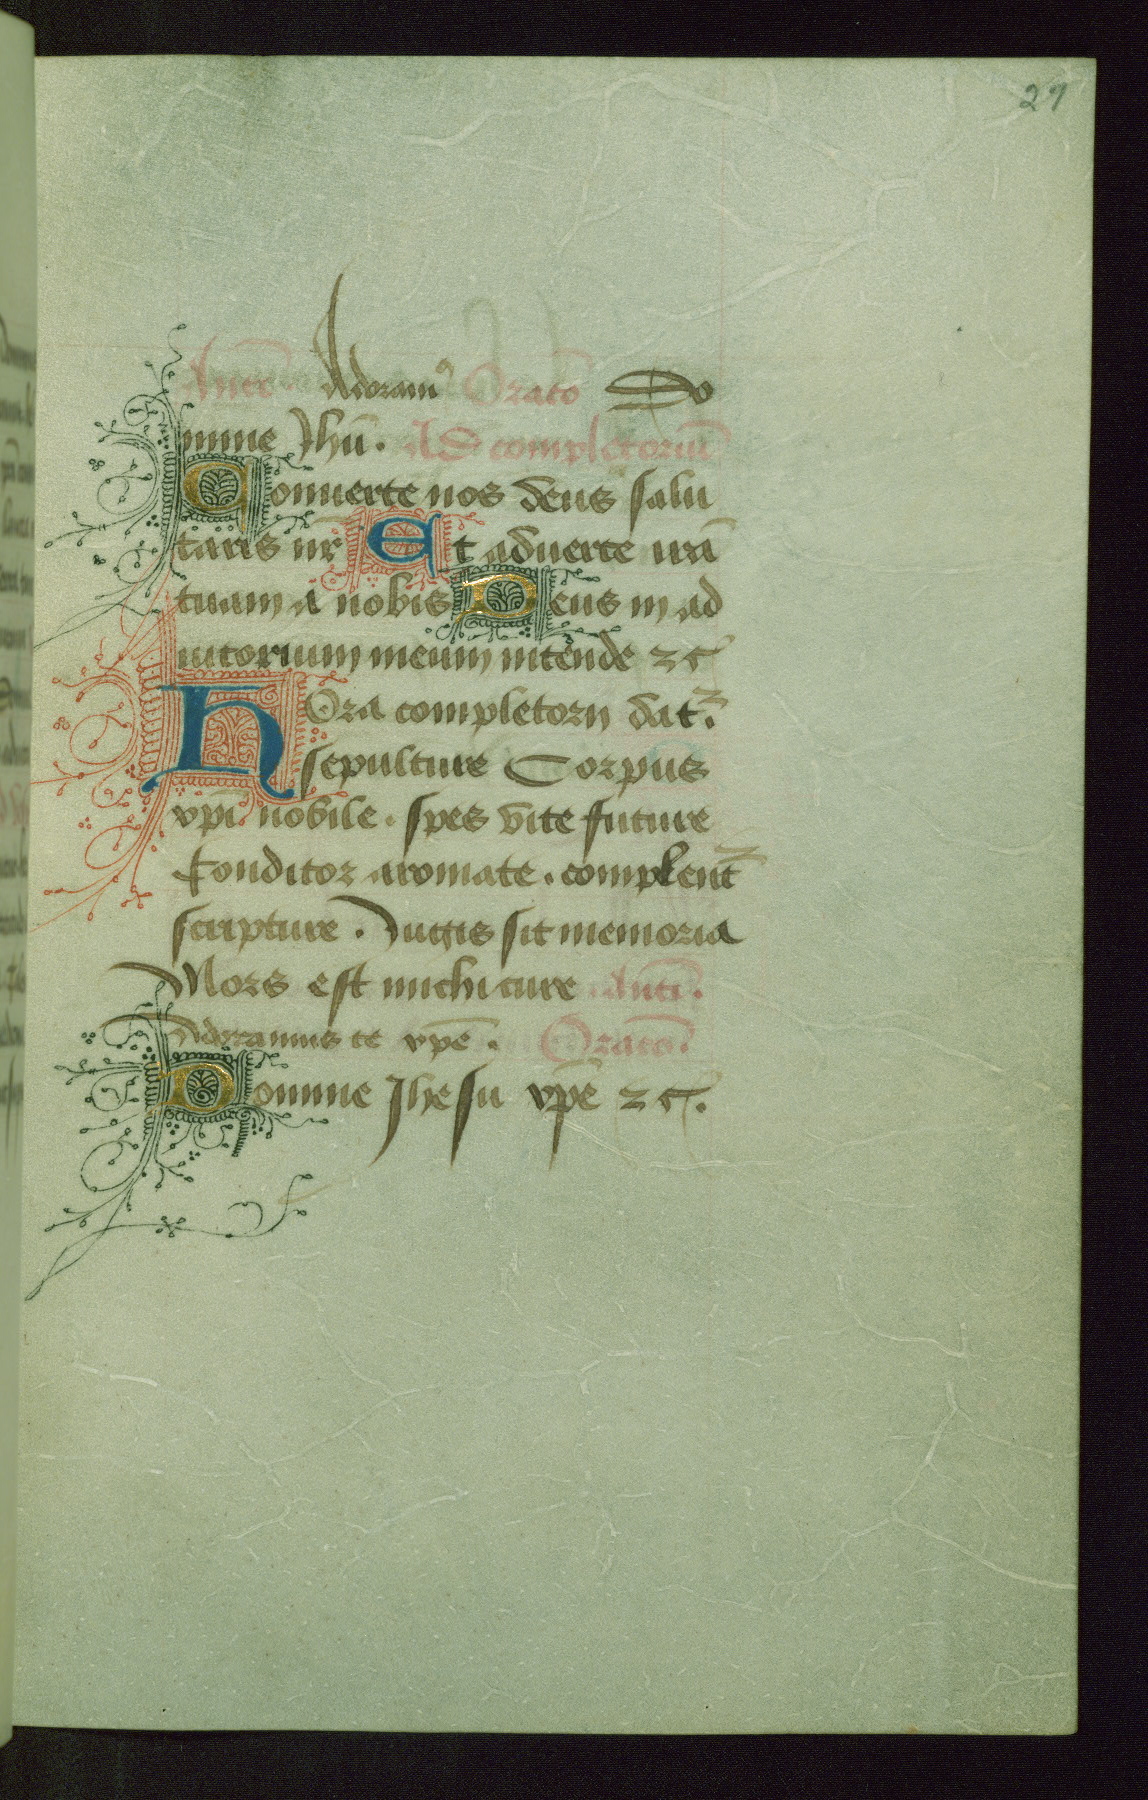 27
Antẽ Adoramꝰ Oratõ Do
mine Jhũ. Ad completoriũ
Conuerte nos deus salu
taris nr̃ Et aduerte irã
tuam a nobis Deus in ad
iutorium meum intende ⁊c̃
Hora completorij datꝛ̃
sepulture Corpus
xp̃i nobile. spes vite future
Conditor aromate. complentꝛ̃
scripture. Jugis sit memoria
Mors est michi cure Antĩ.
Adoramus te xp̃e. Oratõ.
Domine Jhesu xp̃e ⁊c̃.